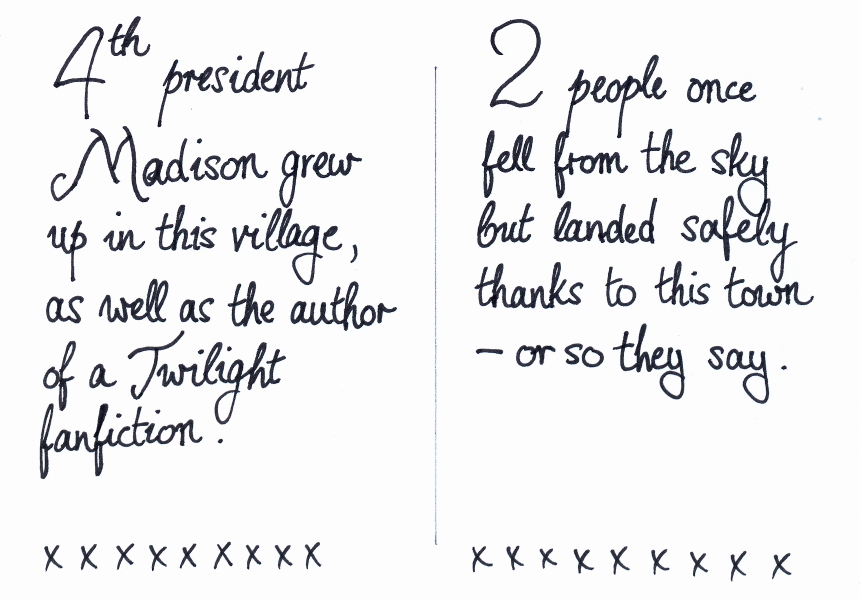 4th president
Madison grew
up in this village,
as well as the author
of a Twilight
fanfiction.
x x x x x x x x x
2 people once
fell from the sky
but landed safely
thanks to this town
– or so they say.
x x x x x x x x x